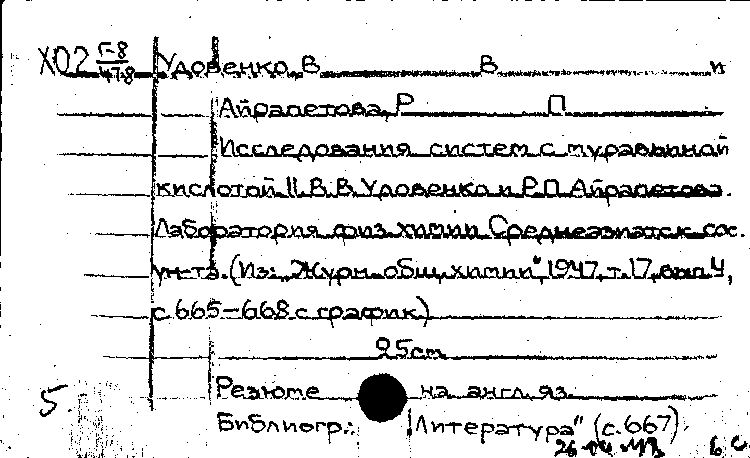 X02 Г-8/478 Удовенко, В. В. и
Айрапетова, Р. П.
Исследования систем с муравьиной
кислотой. II. В. В. Удовенко и Р. П. Айрапетова.
Лаборатория физ. химии Среднеазиатск. гос.
ун-та. (Из: „Журн. общ. химии", 1947, т. 17, вып. 4,
с. 665-668 с график.)
25 cm.
5. Резюме на англ. яз.
Библиогр.: „Литература" (с. 667)